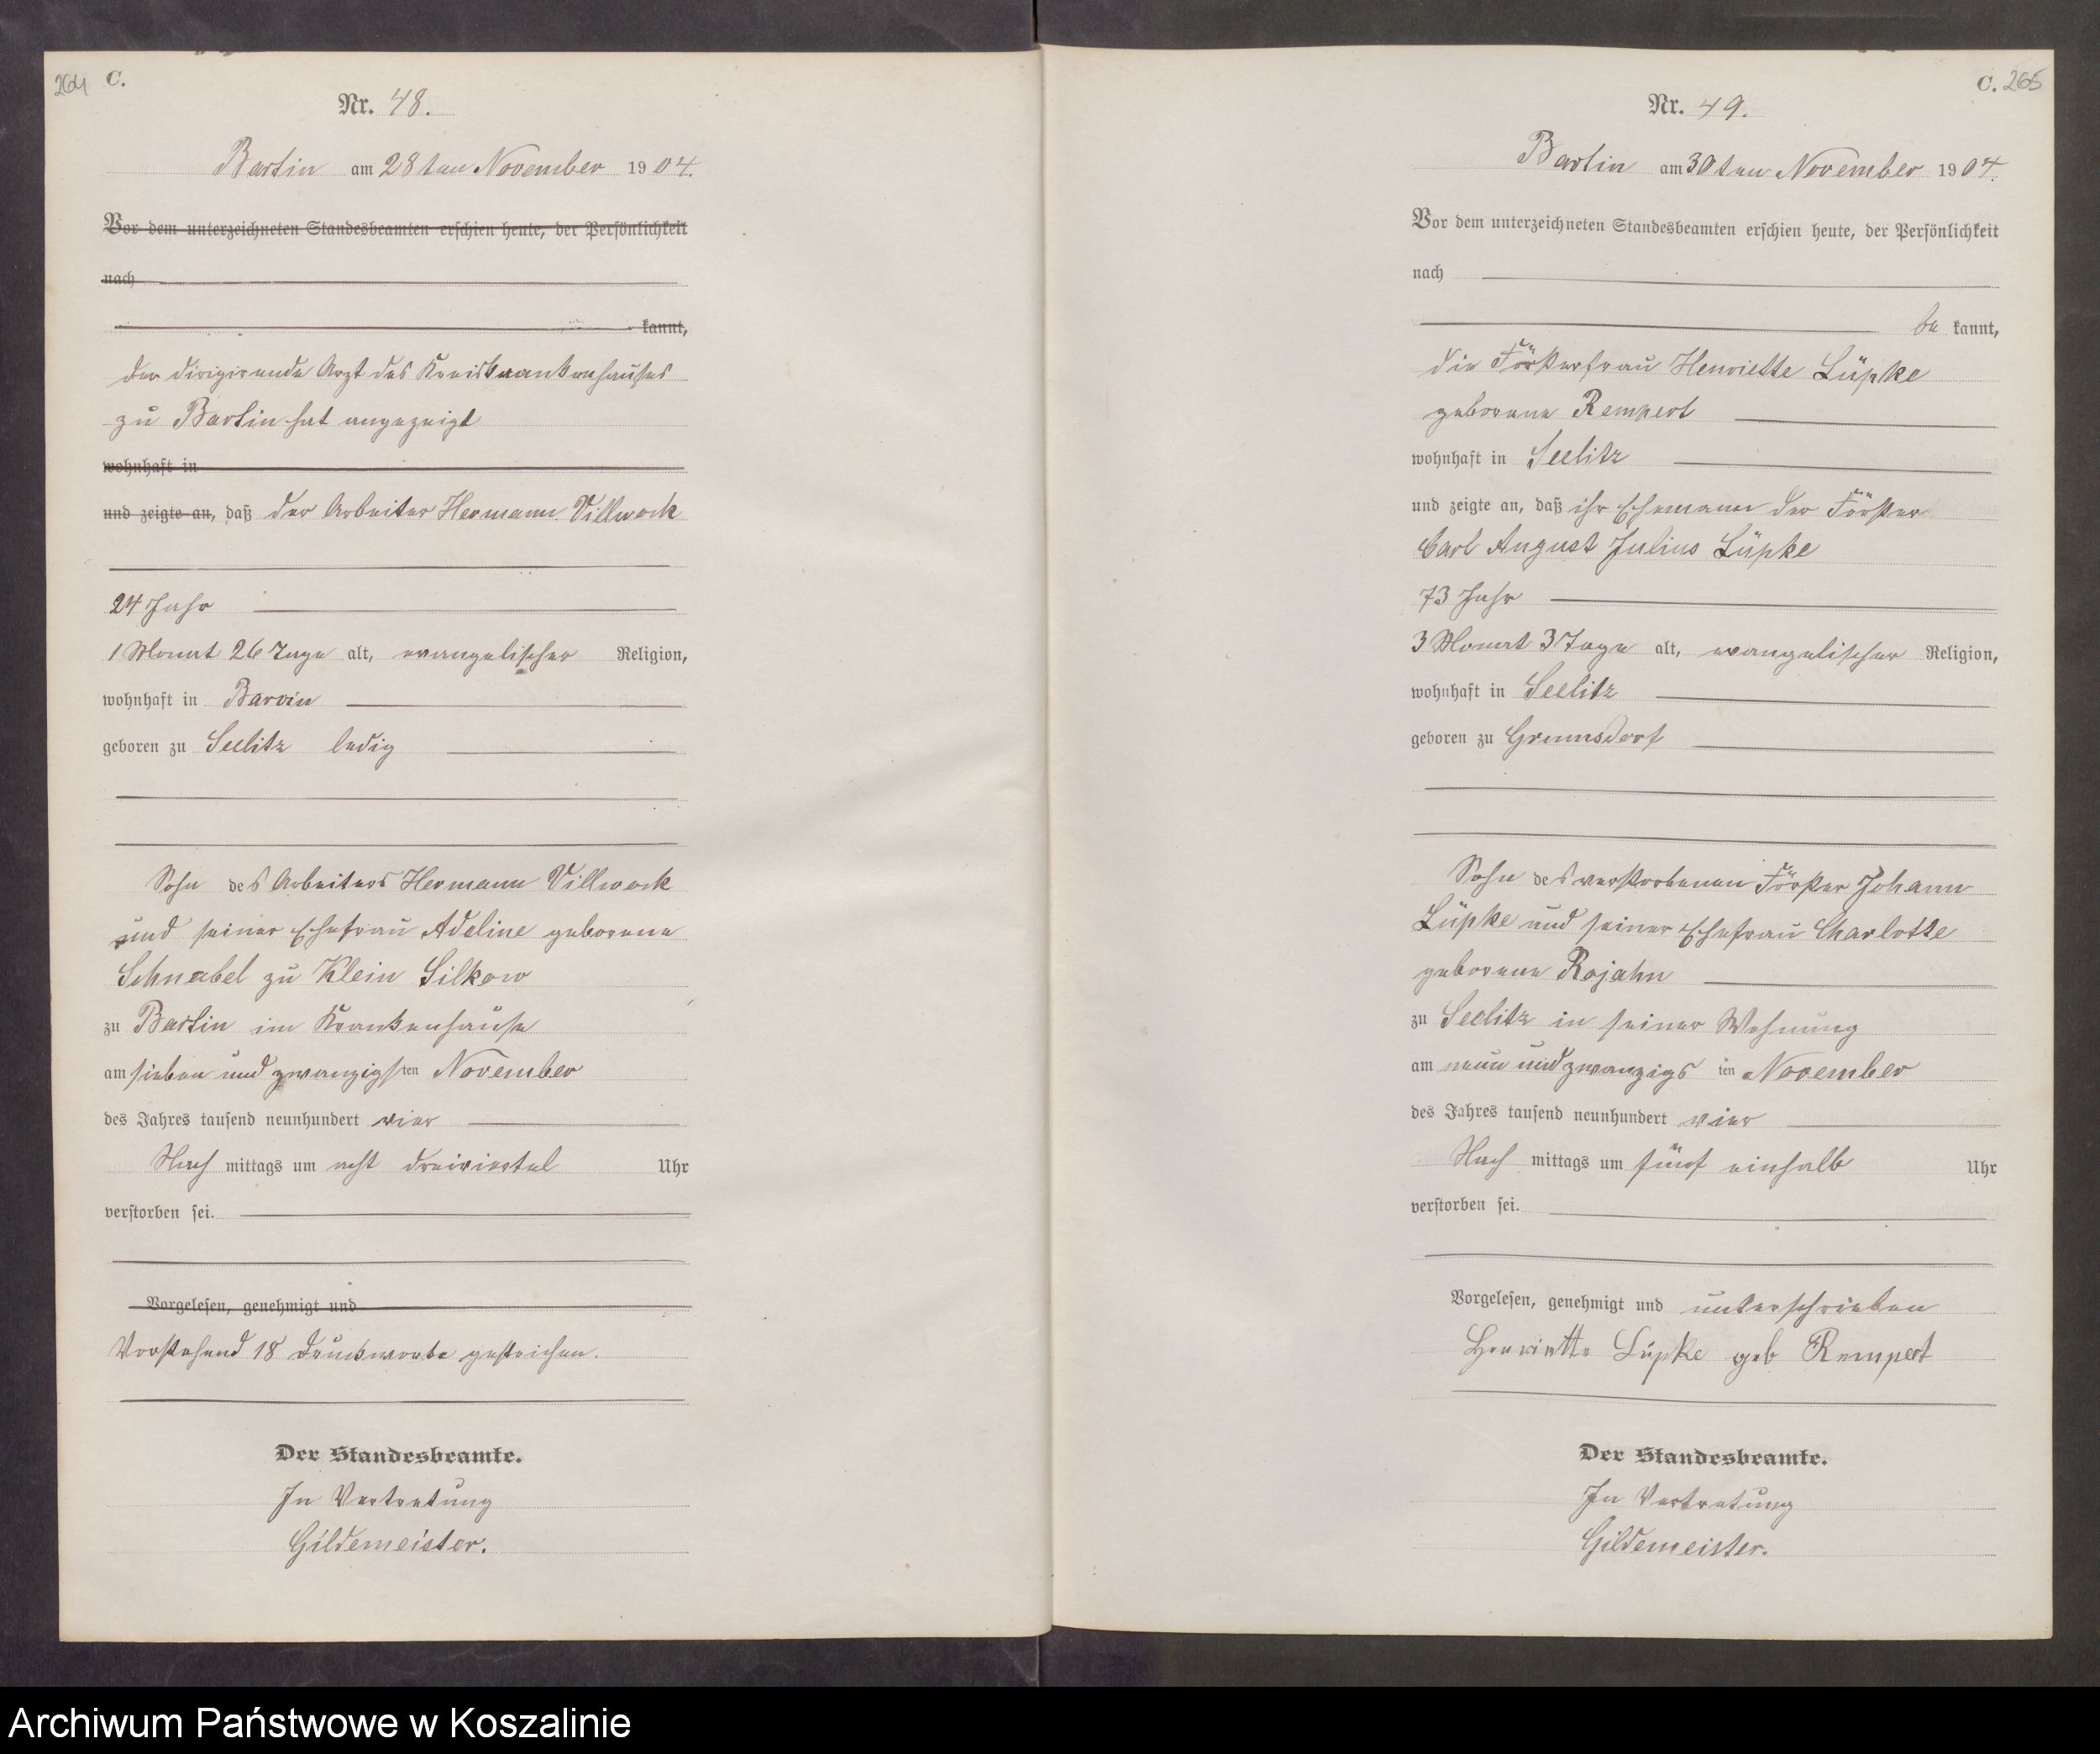 264 C.
Nr. 48.
Bartin am 28ten November 1904.
Vor dem unterzeichneten Standesbeamten erschien heute, der Persönlichkeit
nach
kannt,
der dirigirende Arzt des Kreiskrankenhauses
zu Bartin hat angezeigt
wohnhaft in
und zeigte an, daß der Arbeiter Hermann Villwock
24 Jahr
1 Monat 26 Tage alt, evangelischer Religion,
wohnhaft in Barvin
geboren zu Seelitz ledig
Sohn des Arbeiters Hermann Villwock
und seiner Ehefrau Adeline geborene
Schnabel zu Klein Silkow
zu Bartin im Krankenhause
am sieben und zwanzigsten November
des Jahres tausend neunhundert vier
Nach mittags um acht dreiviertel Uhr
verstorben sei.
Vorgelesen, genehmigt und
Vorstehend 18 Druckworte gestrichen.
Der Standesbeamte.
In Vertretung
Gildemeister.
C. 265
Nr. 49.
Bartin am 30ten November 1904.
Vor dem unterzeichneten Standesbeamten erschien heute, der Persönlichkeit
nach
be kannt,
die Försterfrau Henriette Lüpke
geborene Rempert
wohnhaft in Seelitz
und zeigte an, daß ihr Ehemann der Förster
Carl August Julius Lüpke
73 Jahr
3 Monat 3 Tage alt, evangelischer Religion,
wohnhaft in Seelitz
geboren zu Grumsdorf
Sohn des verstorbenen Förster Johann
Lüpke und seiner Ehefrau Charlotte
geborene Rojahn
zu Seelitz in seiner Wohnung
am neun und zwanzigs ten November
des Jahres tausend neunhundert vier
Nach mittags um fünf einhalb Uhr
verstorben sei.
Vorgelesen, genehmigt und unterschrieben
Henriette Lüpke geb Rempert
Der Standesbeamte.
In Vertretung
Gildemeister.
Archiwum Państwowe w Koszalinie